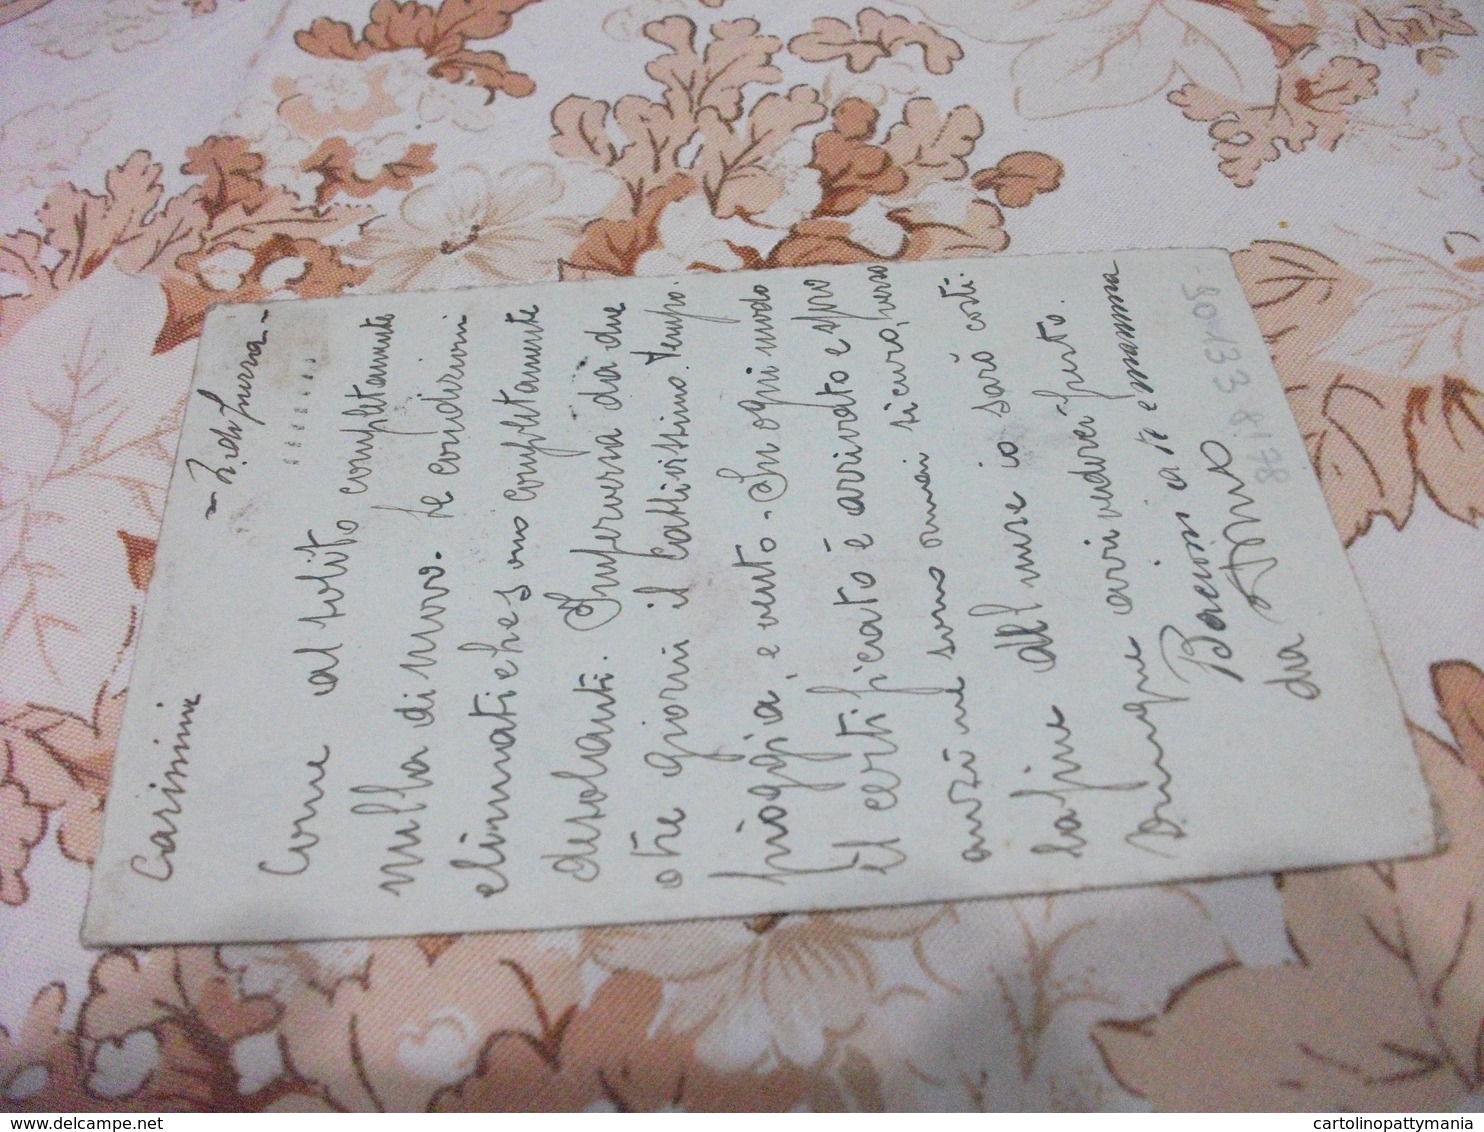 - Z. di guerra -
Carissimi
Come al solito completamente
nulla di nuovo. Le condizioni
climatiche sono completamente
desolanti. Imperversa da due
o tre giorni il cattivissimo tempo.
pioggia, e vento - In ogni modo
Il certificato è arrivato e spero
anzi ne sono ormai sicuro, verso
la fine del mese io sarò costì.
Dunque arrivederci presto.
Bacioni a te e mamma
da Nino
delcampe.net
cartolinopattymania